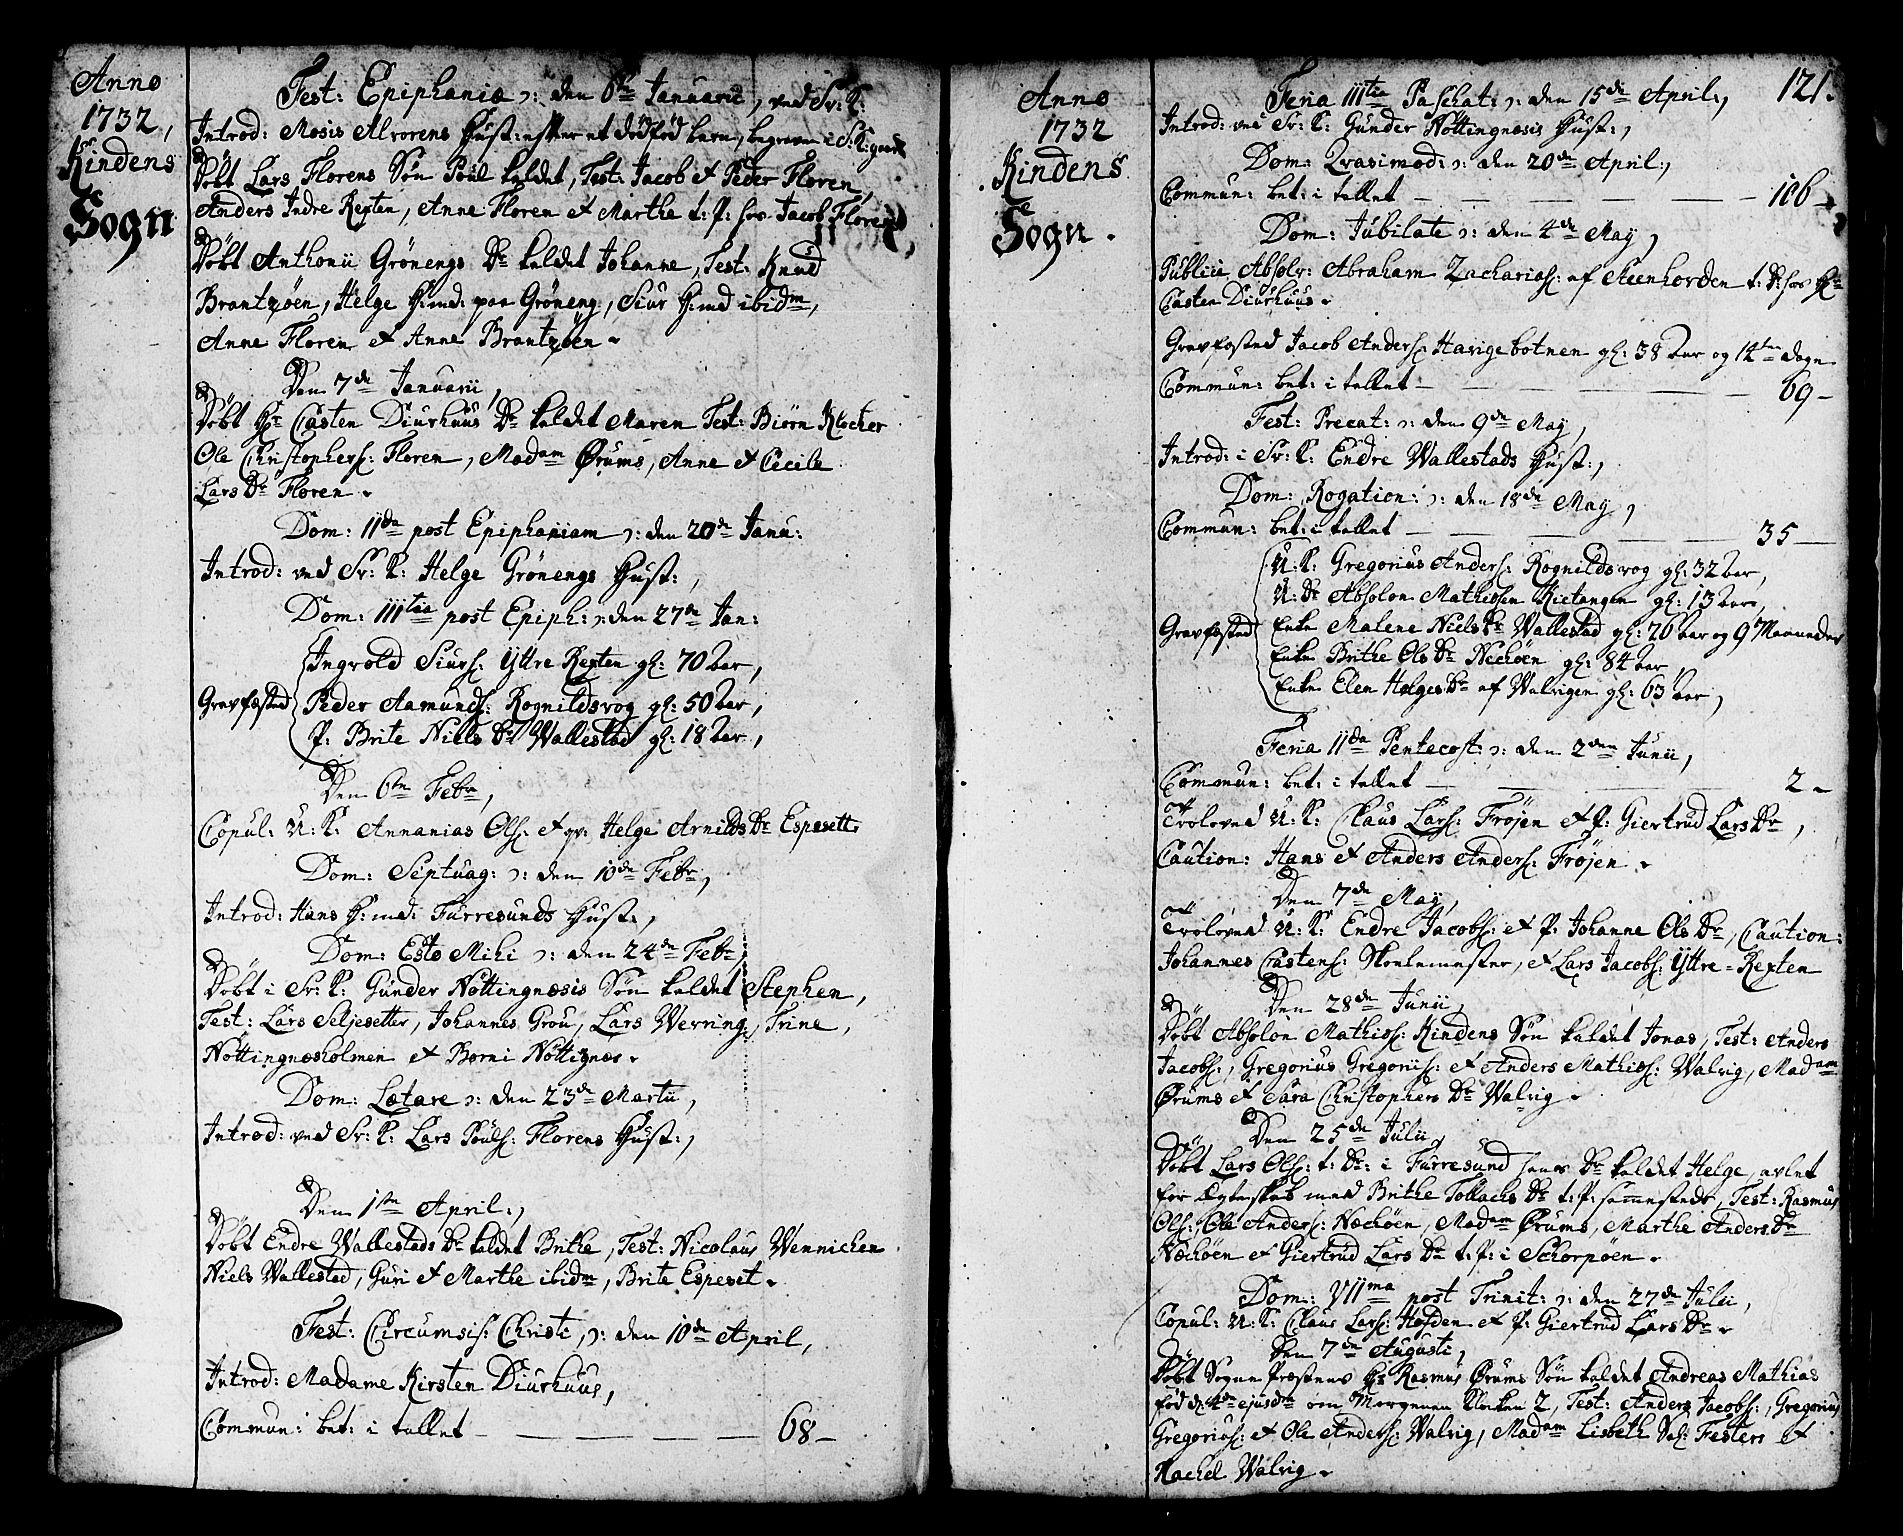 Anno
1732,
Kindens
Sogn
Fest: Epiphaniæ ɔ: den 6te Januarii, ved Sr: K:
Introd: Mosis Alvorens Hust: efter et dödfød barn, begraven i S: K: gaard
Döbt Lars Florens Sön Poul kaldet, Test: Jacob et Peder Floren,
Anders Indre Rexten, Anne Floren et Marthe t: P: hos Jacob Floren
Döbt Anthonii Grönengs Dr kaldet Johanne, Test: Knud
Brantzöen, Helge H:md: paa Gröneng, Siur H:md ibidm,
Anne Floren et Anne Brantzöen.
Den 7de Januarii,
Döbt Hr: Casten Diurhuus Dr kaldet Maren Test: Biörn Klocher
Ole Christophers: Floren, Madam Ørums, Anne et Cecile
Lars Dr Floren.
Dom: IIda post Epiphaniam ɔ: den 20de Janu:
Introd: ved Sr: K: Helge Grönengs Hust:,
Dom: IIItia post Epiph: ɔ: den 27de Jan:
Ingvold Siurs: Yttre Rexten gl: 70 aar,
Gravfæsted Peder Aamunds: Rognildsvog gl: 50 aar,
P: Brite Niels Dr Wallestad gl: 18 aar,
Den 6te Febr,
Copul: U: K: Annanias Ols: et qv: Helge Arnilds Dr Espesett:
Dom: Septuag: ɔ: den 10de Febr,
Introd: Hans H:md: Furresunds Hust:,
Dom: Esto Mihi ɔ: den 24de Febr,
Döbt i Sr: K: Gunder Nöttingnæsis Sön kaldet Stephen,
Test: Lars Seljesetter, Johannes Grou, Lars Werring, Trine,
Nöttingnæsholmen et Borni Nöttignæs.
Dom: Lætare ɔ: den 23de Martii,
Introd: ved Sr: K: Lars Pouls: Florens Hust:,
Den 1ste April:,
Döbt Endre Wallestads Dr kaldet Brithe, Test: Nicolaus Wennichen
Niels Wallestad, Guri et Marthe ibidm, Brite Espeset.
Fest: Circumsis: Christi, ɔ: den 10de April,
Introd: Madame Kirsten Diurhuus,
Commun: bet: i tallet — 68 —
Anno
1732
Kindens
Sogn.
121.
Feria IIItia Paschat: ɔ: den 15de April:,
Introd: ved Sr: K: Gunder Nöttingnæsis Hust:,
Dom: Qvasimod: ɔ: den 20de April:,
Commun: bet: i tallet — 106 —
Dom: Jubilate ɔ: den 4de May,
Publicè Absolv: Abraham Zacharias: af Steenhorden t: D: hos Hr:
Casten Diurhuus.
Gravfæsted Jacob Anders: Havigebotnen gl: 38 aar og 14ten dage
Commun: bet: i tallet — 69 —
Fest: Precat: ɔ: den 9de May,
Introd: i Sr: K: Endre Wallestads Hust:,
Dom: Rogation: ɔ: den 18de May,
Commun: bet: i tallet — 35 —
U: K: Gregorius Anders: Rognildsvog gl: 32 aar,
U: Dr Absolon Mathissen Rietangen gl: 13 aar,
Gravfæsted Enke Malene Niels Dr Wallestad gl: 76 aar og 9 Maaneder
Enke Brithe Ols Dr Nechöen gl: 84 aar,
Enke Elen Helges Dr af Walvigen gl: 63 aar,
Feria IIda Pentecost: ɔ: den 2den Junii,
Commun: bet: i tallet — 2 —
Trolovved U: K: Claus Lars: Fröjen et P: Giertrud Lars Dr,
Caution: Hans et Anders Anders: Fröjen.
Den 7de May,
Trolovved U: K: Endre Jacobs: et P: Johanne Ols Dr, Caution:
Johannes Castens: Skolemester, et Lars Jacobs: Yttre-Rexten
Den 28de Junii,
Döbt Absolon Mathiss: Kindens Sön kaldet Jonas, Test: Anders
Jacobs:, Gregorius Gregoriis: et Anders Mathiss: Walvig, Madam
Ørums et Sara Christophers Dr Walvig.
Den 25de Julii,
Döbt Lars Ols: t: Dr: i Furresund hans Dr kaldet Helge, avlet
for Ægteskab med Brithe Tollachs Dr t: P: sammesteds, Test: Rasmus
Ols: Ole Anders: Nechöen, Madam Ørums, Marthe Anders Dr
Nechöen et Giertrud Lars Dr t: P: i Schorpöen.
Dom: VIIma post Trinit: ɔ: den 27de Julii,
Copul: U: K: Claus Lars: Hofden et P: Giertrud Lars Dr.
Den 7de Augusti,
Döbt Sogne Præstens Hr: Rasmus Ørums Sön kaldet Andreas Mathias
föd d: 4de ejusdm om Morgenen Klocken 2, Test: Anders Jacobs:, Gregorius
Gregorius: et Ole Anders: Walvig, Madam Lisbeth Sal: Festers et
Rachel Walvig.